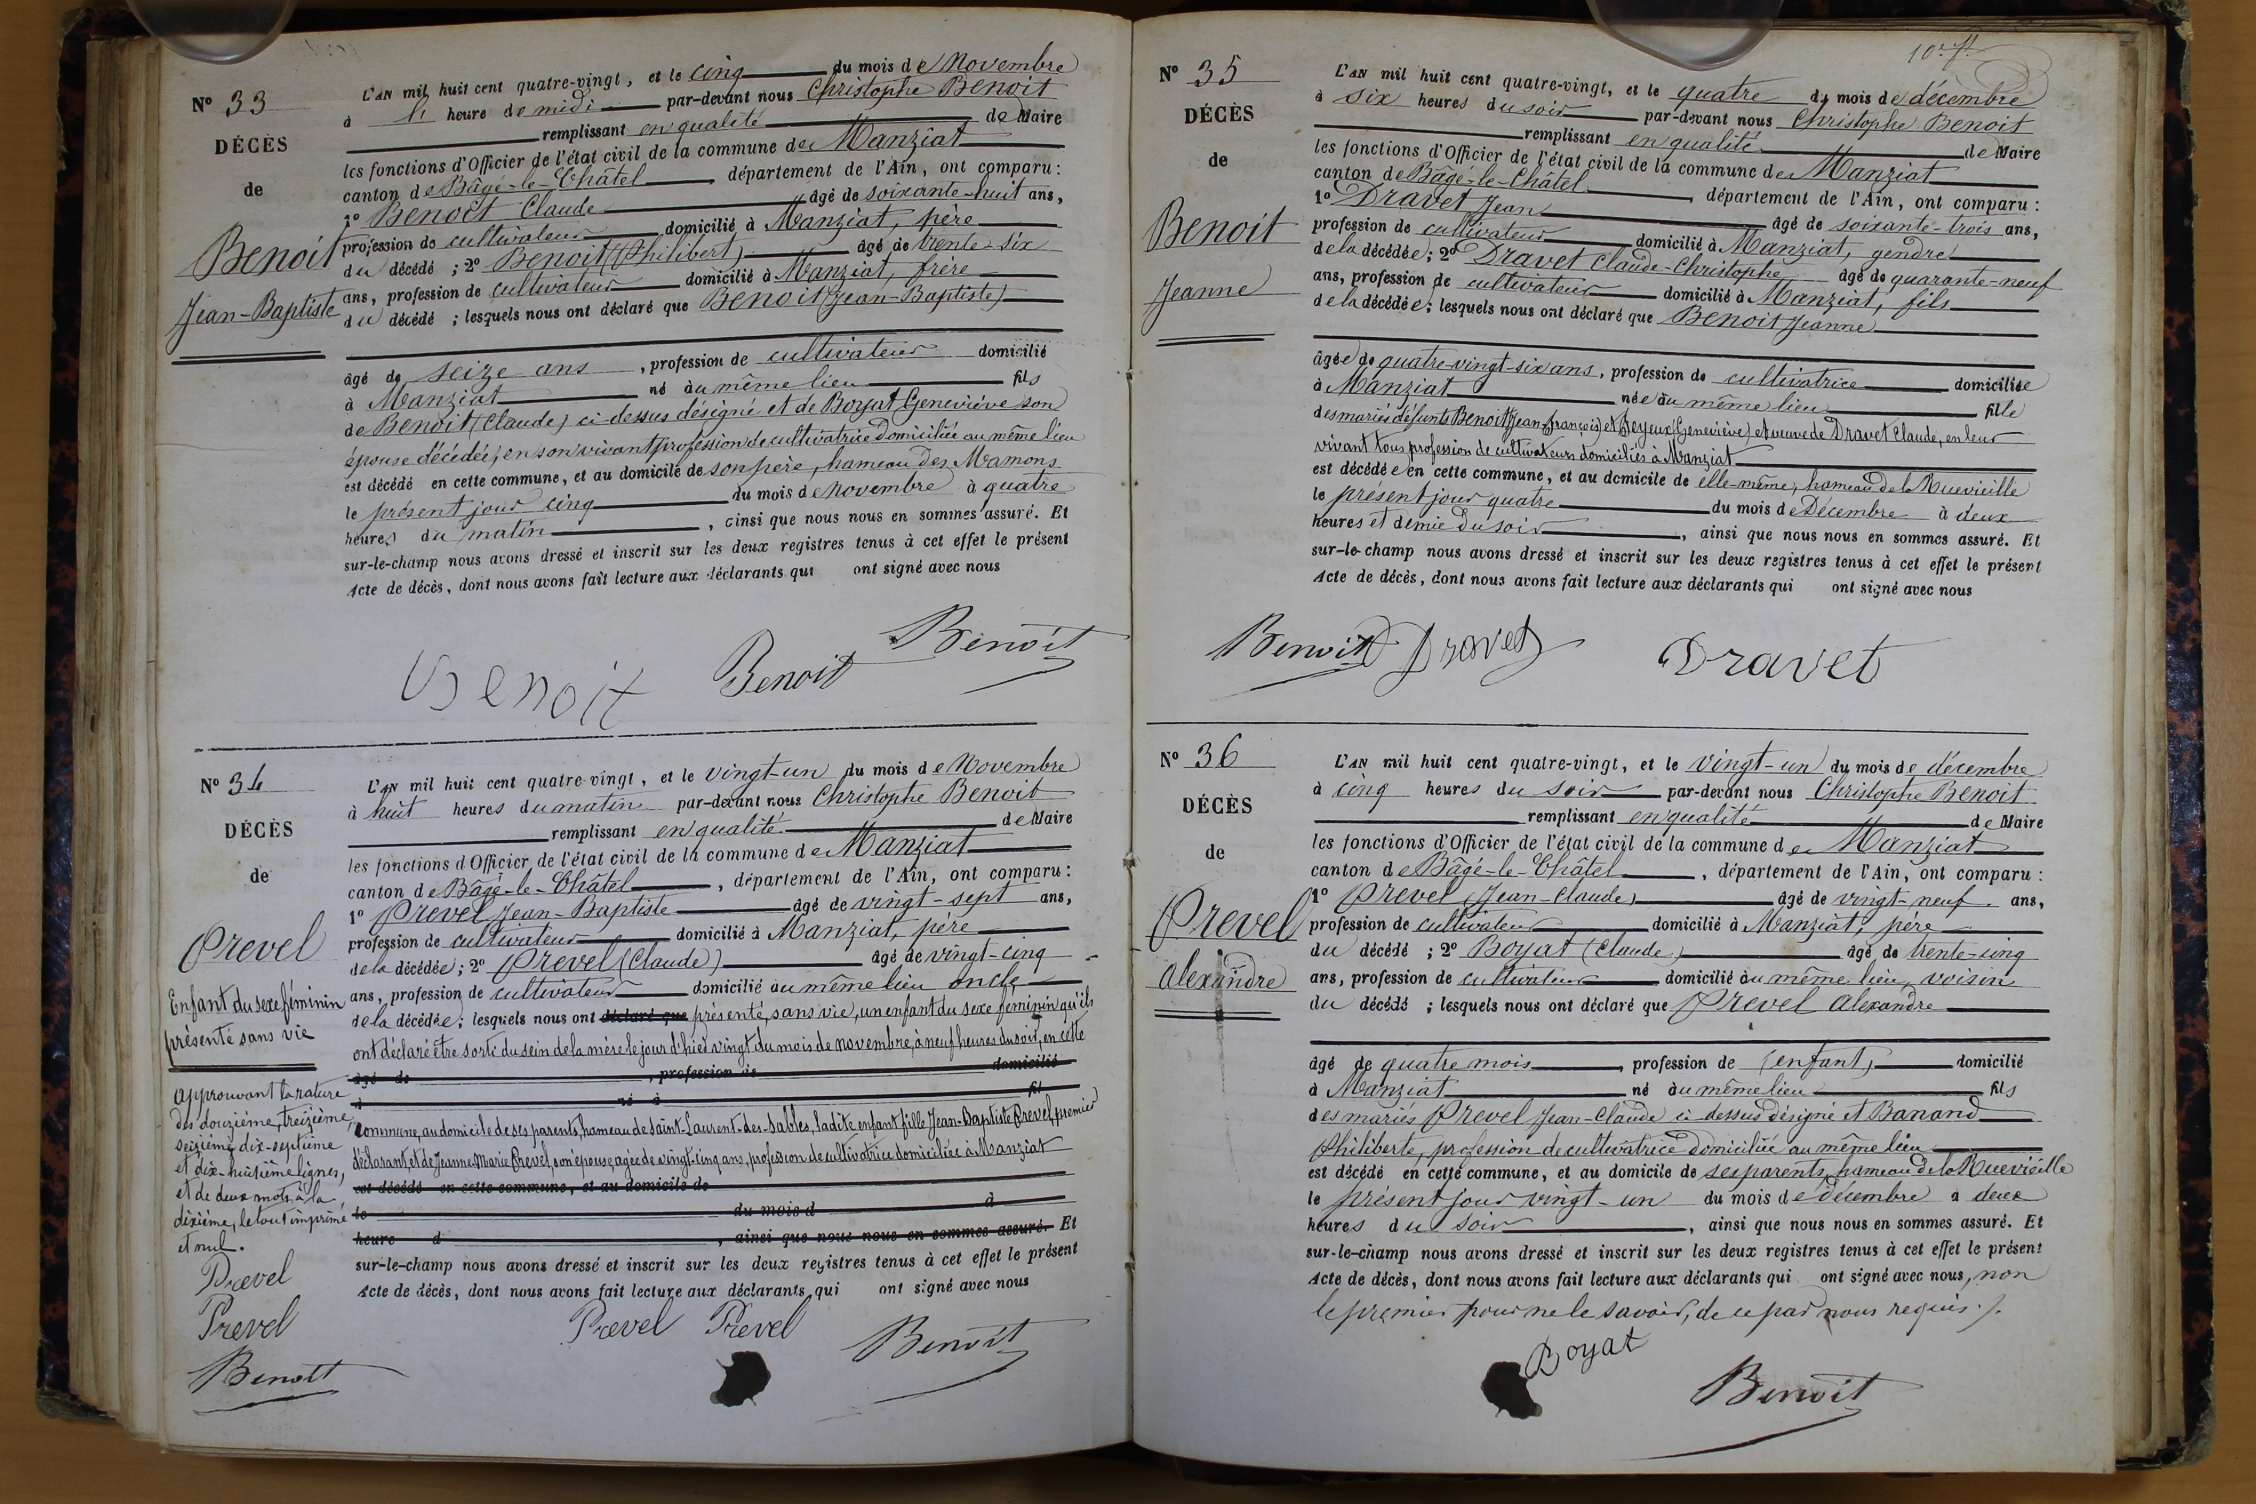 N° 33
DÉCÈS
de
Benoit
Jean-Baptiste
L'AN mil huit cent quatre-vingt, et le cinq du mois de Novembre
à l' heure de midi par-devant nous Christophe Benoit
remplissant en qualité de Maire
les fonctions d'Officier de l'état civil de la commune de Manziat
canton de Bâgé-le-Châtel département de l'Ain, ont comparu :
1° Benoit Claude âgé de soixante-huit ans,
profession de cultivateur domicilié à Manziat, père
du décédé ; 2° Benoit (Philibert) âgé de trente-six
ans, profession de cultivateur domicilié à Manziat, frère
du décédé ; lesquels nous ont déclaré que Benoit (Jean-Baptiste)
âgé de seize ans, profession de cultivateur domicilié
à Manziat né au même lieu fils
de Benoit (Claude) ci-dessus désigné et de Boyat Geneviève son
épouse décédée, en son vivant profession de cultivatrice domiciliée au même lieu
est décédé en cette commune, et au domicile de son père, hameau des Mamons
le présent jour cinq du mois de Novembre à quatre
heures du matin, ainsi que nous nous en sommes assuré. Et
sur-le-champ nous avons dressé et inscrit sur les deux registres tenus à cet effet le présent
Acte de décès, dont nous avons fait lecture aux déclarants qui ont signé avec nous
Benoit Benoit Benoit
N° 34
DÉCÈS
de
Prevel
Enfant du sexe féminin
présenté sans vie
Approuvant la rature
des douzième, treizième,
seizième, dix-septième
et dix-huitième lignes,
et de deux mots à la
dixième, le tout imprimé
et nul.
Prevel
Prevel
Benoit
L'AN mil huit cent quatre-vingt, et le vingt-un du mois de Novembre
à huit heures du matin par-devant nous Christophe Benoit
remplissant en qualité de Maire
les fonctions d'Officier de l'état civil de la commune de Manziat
canton de Bâgé-le-Châtel, département de l'Ain, ont comparu :
1° Prevel Jean-Baptiste âgé de vingt-sept ans,
profession de cultivateur domicilié à Manziat, père
de la décédée ; 2° Prevel (Claude) âgé de vingt-cinq
ans, profession de cultivateur domicilié au même lieu oncle
de la décédée ; lesquels nous ont déclaré que présenté, sans vie, un enfant du sexe féminin qu'ils
ont déclaré être sorti du sein de la mère le jour d'hier vingt du mois de novembre, à neuf heures du soir, en cette
âgé de , profession de domicilié
à né à fil
commune, au domicile de ses parents, hameau de Saint-Laurent-des-Sables, ladite enfant fille Jean-Baptiste Prevel, premier
déclarant, et de Jeanne Marie Prevel, son épouse, agée de vingt-cinq ans, profession de cultivatrice domiciliée à Manziat
est décédé en cette commune, et au domicile de
le du mois d à
heure d , ainsi que nous nous en sommes assuré. Et
sur-le-champ nous avons dressé et inscrit sur les deux registres tenus à cet effet le présent
Acte de décès, dont nous avons fait lecture aux déclarants qui ont signé avec nous
Prevel Prevel Benoit
N° 35
DÉCÈS
de
Benoit
Jeanne
L'AN mil huit cent quatre-vingt, et le quatre du mois de décembre
à six heures du soir par-devant nous Christophe Benoit
remplissant en qualité de Maire
les fonctions d'Officier de l'état civil de la commune de Manziat
canton de Bâgé-le-Châtel, département de l'Ain, ont comparu :
1° Dravet Jean âgé de soixante-trois ans,
profession de cultivateur domicilié à Manziat, gendre
de la décédée ; 2° Dravet Claude-Christophe âgé de quarante-neuf
ans, profession de cultivateur domicilié à Manziat, fils
de la décédée ; lesquels nous ont déclaré que Benoit Jeanne
âgée de quatre-vingt-six ans, profession de cultivatrice domiciliée
à Manziat née au même lieu fille
des mariés défunts Benoit (Jean-François) et Feyeux (Geneviève) et veuve de Dravet Claude, en leur
vivant tous profession de cultivateurs domiciliés à Manziat
est décédée en cette commune, et au domicile de elle-même, hameau de la Ruevieille
le présent jour quatre du mois de Décembre à deux
heures et demie du soir, ainsi que nous nous en sommes assuré. Et
sur-le-champ nous avons dressé et inscrit sur les deux registres tenus à cet effet le présent
Acte de décès, dont nous avons fait lecture aux déclarants qui ont signé avec nous
Benoit Dravet Dravet
N° 36
DÉCÈS
de
Prevel
Alexandre
L'AN mil huit cent quatre-vingt, et le vingt-un du mois de décembre
à cinq heures du soir par-devant nous Christophe Benoit
remplissant en qualité de Maire
les fonctions d'Officier de l'état civil de la commune de Manziat
canton de Bâgé-le-Châtel, département de l'Ain, ont comparu :
1° Prevel (Jean-Claude) âgé de vingt-neuf ans,
profession de cultivateur domicilié à Manziat, père
du décédé ; 2° Boyat (Claude) âgé de trente-cinq
ans, profession de cultivateur domicilié au même lieu, voisin
du décédé ; lesquels nous ont déclaré que Prevel Alexandre
âgé de quatre mois, profession de (enfant) domicilié
à Manziat né au même lieu fils
des mariés Prevel Jean-Claude ci-dessus désigné et Banand
Philiberte, profession de cultivatrice domiciliée au même lieu
est décédé en cette commune, et au domicile de ses parents, hameau de la Ruevieille
le présent jour vingt-un du mois de décembre à deux
heures du soir, ainsi que nous nous en sommes assuré. Et
sur-le-champ nous avons dressé et inscrit sur les deux registres tenus à cet effet le présent
Acte de décès, dont nous avons fait lecture aux déclarants qui ont signé avec nous, non
le premier pour ne le savoir, de ce par nous requis.
Boyat Benoit